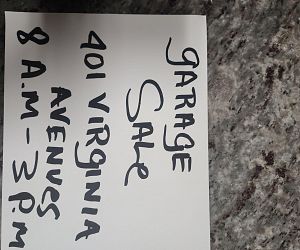 GARAGE
SALE
401 VIRGINIA
AVENUES
8 A.M - 3 P.M